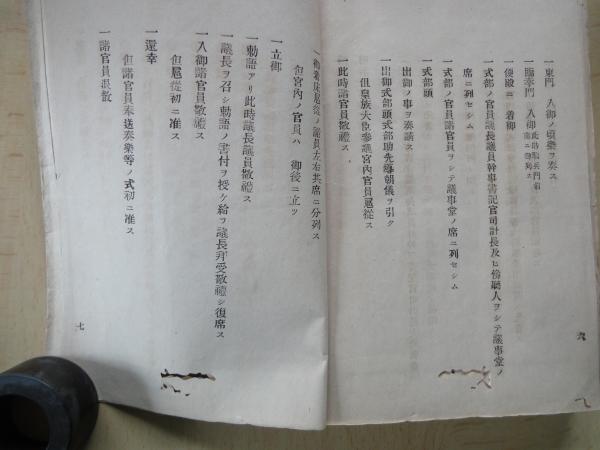 一東門 入御ノ頃樂ヲ奏ス
一臨幸門 入御
一便殿ニ 着御
一式部ノ官員議長議員幹事書記官司計長及ヒ傍聽人ヲシテ議事堂ノ
席ニ列セシム
一式部ノ官員諸官員ヲシテ議事堂ノ席ニ列セシム
一式部頭
出御ノ事ヲ奏請ス
一出御式部頭式部助先導朝儀ヲ引ク
但皇族大臣參議宮內官員扈從ス
一此時諸官員敬禮ス
六
一御着床扈從ノ議員左右共席ニ分列ス
但宮內ノ官員ハ 御後ニ立ツ
一立御
一勅語アリ此時議長議員敬禮ス
一議長ヲ召シ勅語ノ書付ヲ授ケ給ヲ議長拜受敬禮シ復席ス
一入御諸官員敬禮ス
但扈從初ニ准ス
一還幸
但諸官員奉送奏樂等ノ式初ニ准ス
一諸官員退散
七